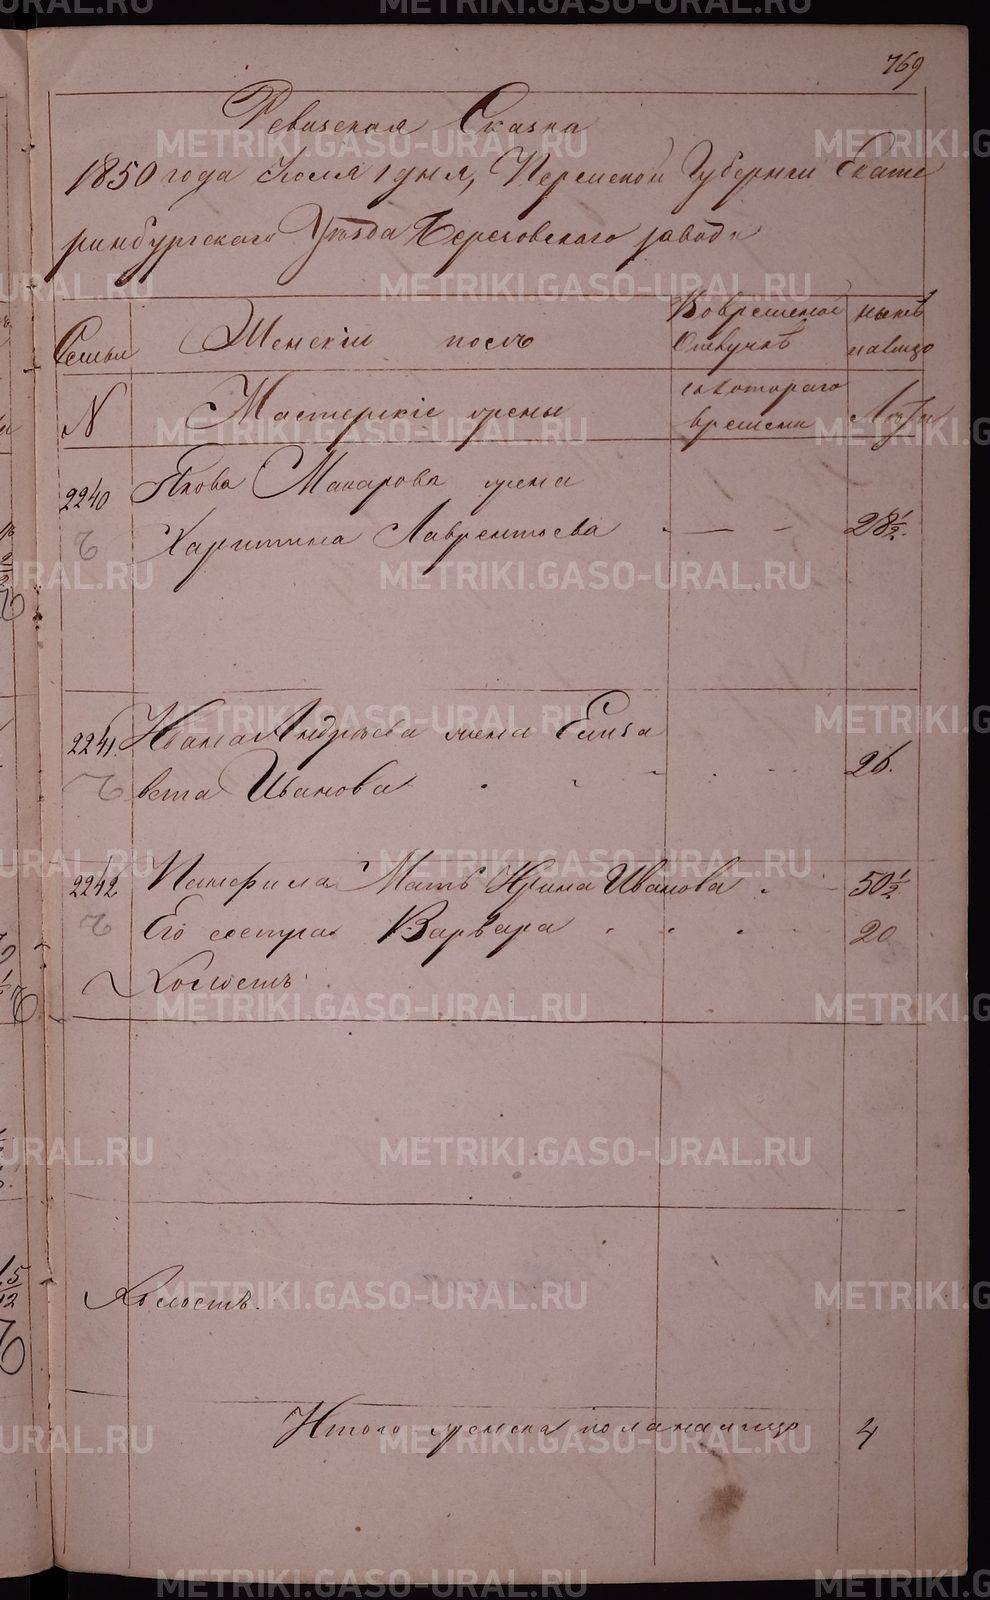 769
Ревизская Сказка
1850 года Июля 1 дня, Пермской Губернии Екате
ринбургскаго Уѣзда Березовскаго завода
Семьи
Женскій полъ
Вовременной
Отлучкѣ
нынѣ
налицо
N
Мастерскіе жены
съкотораго
времени
Лѣта
2240
Якова Макарова жена
Харитина Лаврентьева - - - 28½.
2241.
Ивана Андрѣева жена Елиза
вета Иванова 26.
2242
Памфила Мать Ирина Иванова 50½
Его сестра Варвара 20
Холостъ
Холостъ.
Итого женска пола налицо 4
METRIKI.GASO-URAL.RU